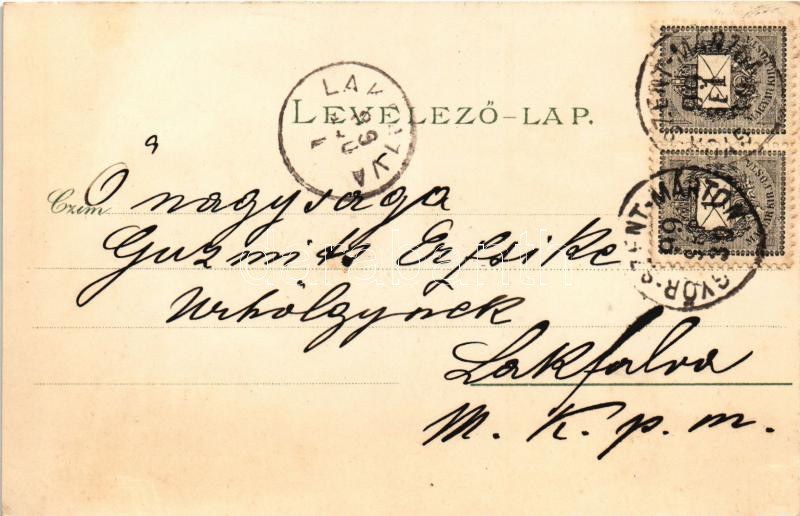 LEVELEZŐ-LAP.
Czim
Ő nagysága
Guzmits Erzsike
Urhölgynek
Lakfalva
M. K. p. m.
GYŐR-SZENT-MÁRTON
99
30